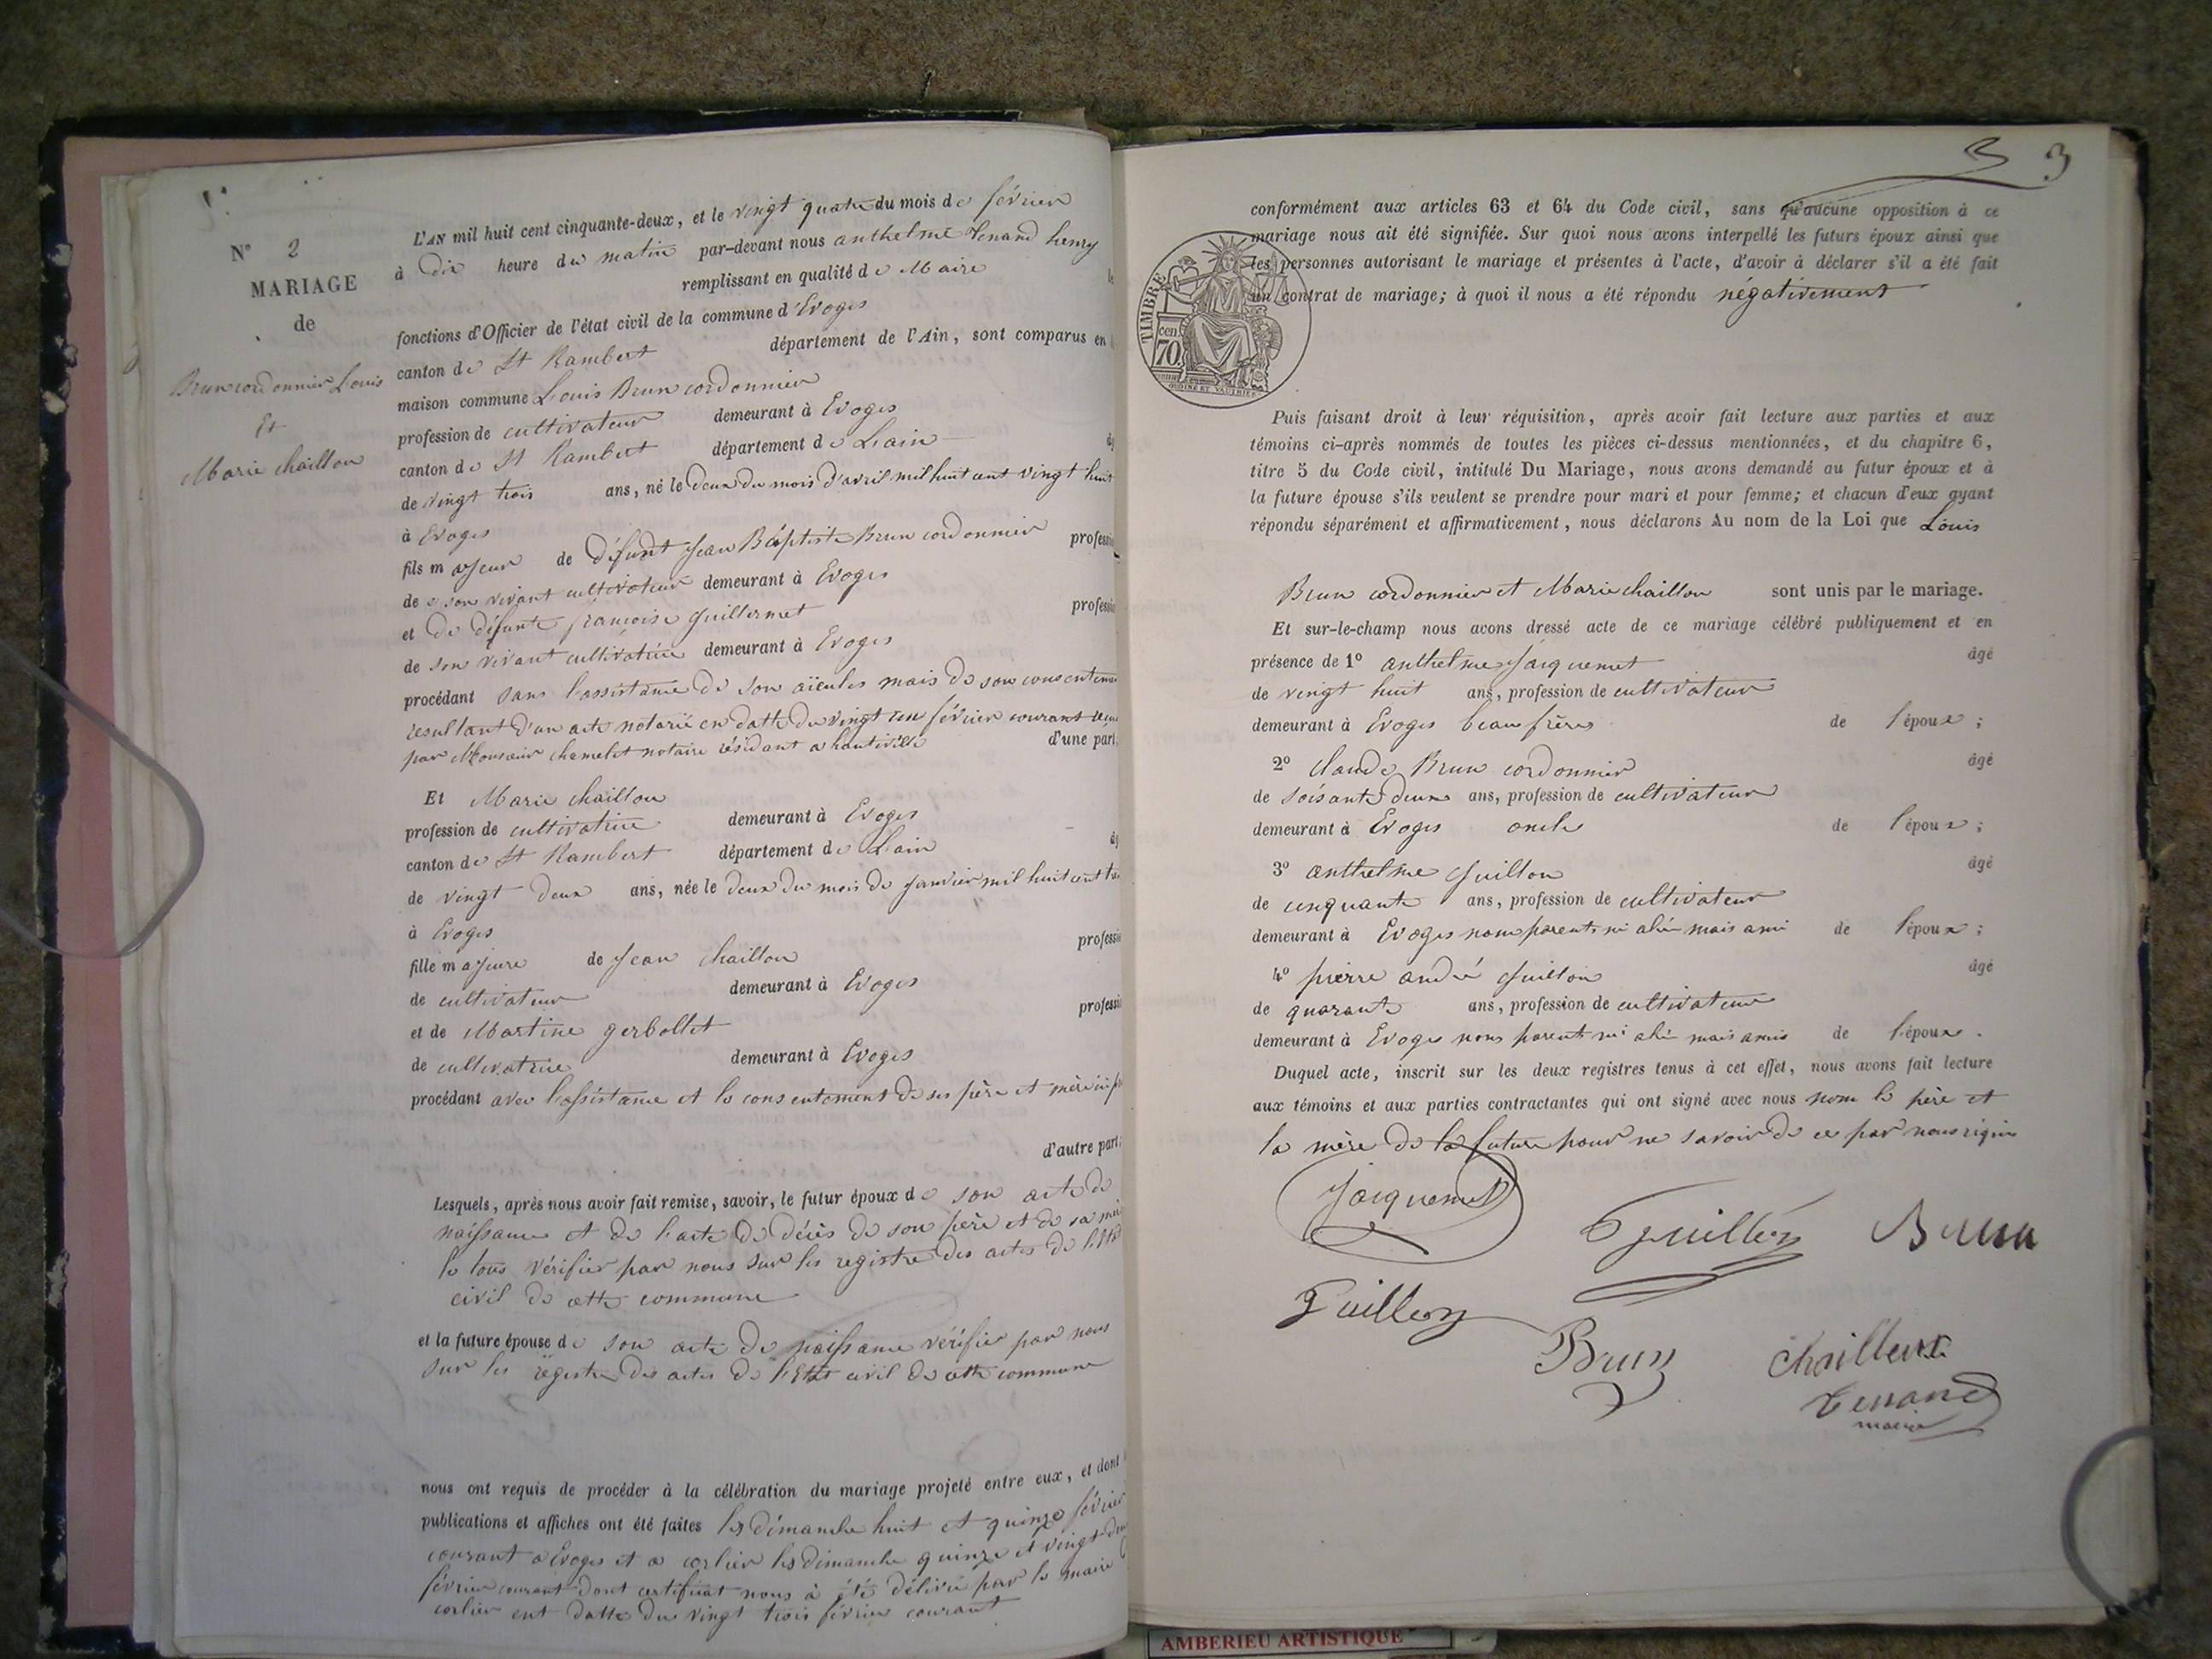 N° 2
MARIAGE
de
Brun cordonnier Louis
Et
Marie chaillou
L'AN mil huit cent cinquante-deux, et le vingt quatre du mois de février
à dix heure du matin par-devant nous anthelme Tenand henry
remplissant en qualité de Maire
fonctions d'Officier de l'état civil de la commune d'Evoges
canton de St Rambert département de l'Ain, sont comparus en
maison commune Louis Brun cordonnier
profession de cultivateur demeurant à Evoges
canton de St Rambert département de Lain
de vingt trois ans, né le deux du mois d'avril mil huit cent vingt huit
à Evoges
fils majeur de défunt Jean Baptiste Brun cordonnier
de son vivant cultivateur demeurant à Evoges
et de défunte françoise guillermet
de son vivant cultivatrice demeurant à Evoges
procédant sans l'assistance de son aïeules mais de son
resultant d'un acte notarié en datte du vingt un février courant
par Monsieur chamelet notaire résidant a hauteville d'une part,
Et Marie chaillou
profession de cultivatrice demeurant à Evoges
canton de St Rambert département de Lain
de vingt deux ans, née le deux du mois de janvier mil huit cent
à Evoges
fille majeure de Jean chaillou
de cultivateur demeurant à Evoges
et de Martine gerbollet
de cultivatrice demeurant à Evoges
procédant avec l'assistance et le consentement de ses père et mère
d'autre part;
Lesquels, après nous avoir fait remise, savoir, le futur époux de son acte de
naissance et de l'acte de décès de son père et de sa
le tous vérifier par nous sur les registre des actes de
civil de cette commune
et la future épouse de son acte de naissance vérifier par nous
sur les registre des actes de l'Etat civil de cette commune
nous ont requis de procéder à la célébration du mariage projeté entre eux, et dont
publications et affiches ont été faites les dimanche huit et quinze février
courant a Evoges et a corlier les dimanche quinze et vingt
février courant dont certificat nous à été délivré par le maire
corlier ent datte du vingt trois février courant
3 3
conformément aux articles 63 et 64 du Code civil, sans qu'aucune opposition à ce
mariage nous ait été signifiée. Sur quoi nous avons interpellé les futurs époux ainsi que
les personnes autorisant le mariage et présentes à l'acte, d'avoir à déclarer s'il a été fait
un contrat de mariage; à quoi il nous a été répondu négativement
TIMBRE
cen.
70
Puis faisant droit à leur réquisition, après avoir fait lecture aux parties et aux
témoins ci-après nommés de toutes les pièces ci-dessus mentionnées, et du chapitre 6,
titre 5 du Code civil, intitulé Du Mariage, nous avons demandé au futur époux et à
la future épouse s'ils veulent se prendre pour mari et pour femme; et chacun d'eux ayant
répondu séparément et affirmativement, nous déclarons Au nom de la Loi que Louis
Brun cordonnier et Marie chaillou sont unis par le mariage.
Et sur-le-champ nous avons dressé acte de ce mariage célébré publiquement et en
présence de 1° anthelme Jacquemet âgé
de vingt huit ans, profession de cultivateur
demeurant à Evoges beau frère de l'époux;
2° claude Brun cordonnier âgé
de soisante deux ans, profession de cultivateur
demeurant à Evoges oncle de l'époux;
3° anthelme Guillon âgé
de cinquante ans, profession de cultivateur
demeurant à Evoges nom parents ni alié mais ami de l'époux;
4° pierre andré Guillon âgé
de quarante ans, profession de cultivateur
demeurant à Evoges nons parent ni alié mais amis de l'époux.
Duquel acte, inscrit sur les deux registres tenus à cet effet, nous avons fait lecture
aux témoins et aux parties contractantes qui ont signé avec nous nom le père et
la mère de la future pour ne savoir de ce par nous
Jacquemet
Guillon
Brun
Guillon
Brun
Tenand
maire
AMBERIEU ARTISTIQUE